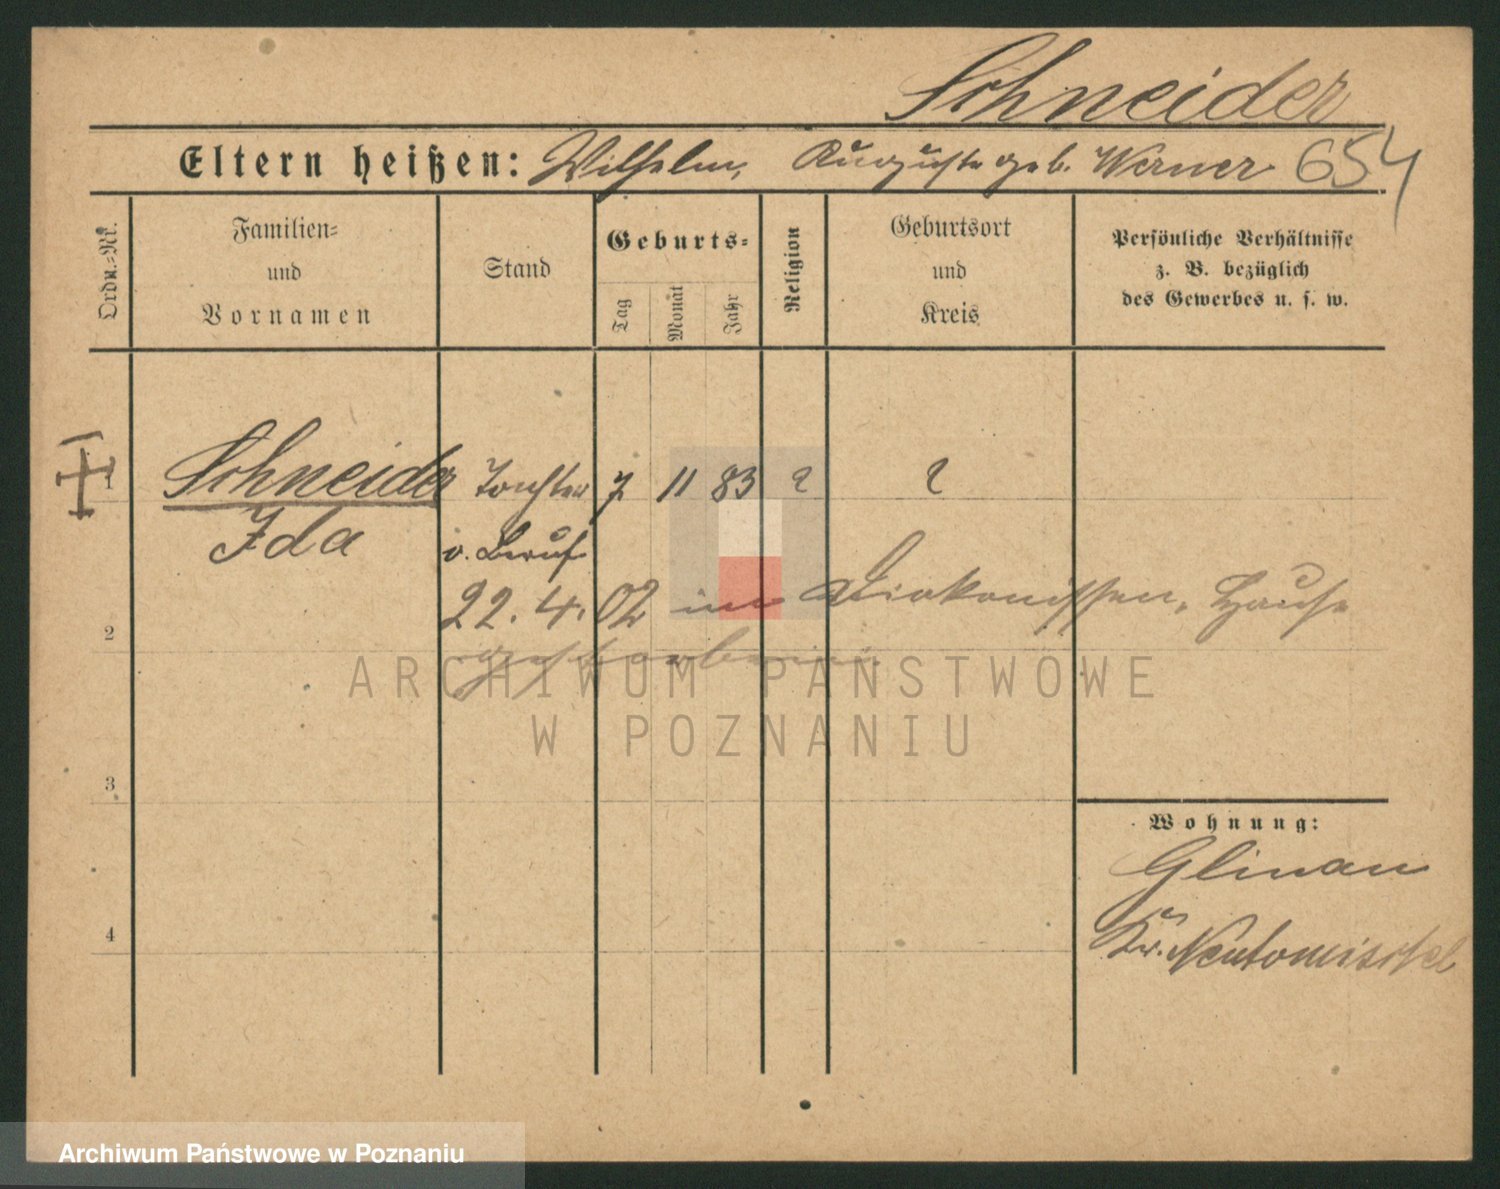 Schneider
Eltern heißen: Wilhelm, Auguste geb. Werner 654
Ordn.-Nr.
Familien-
und
Vornamen
Stand
Geburts-
Tag
Monat
Jahr
Religion
Geburtsort
und
Kreis
Persönliche Verhältnisse
z. B. bezüglich
des Gewerbes u. s. w.
1 Schneider Tochter 7 11 83 ? ?
Ida o. Beruf
2 22. 4. 02 im Diakonissen-Hause
gestorben
ARCHIWUM PAŃSTWOWE
W POZNANIU
3
Wohnung:
Glinau
4 Kr. Neutomischel
Archiwum Państwowe w Poznaniu